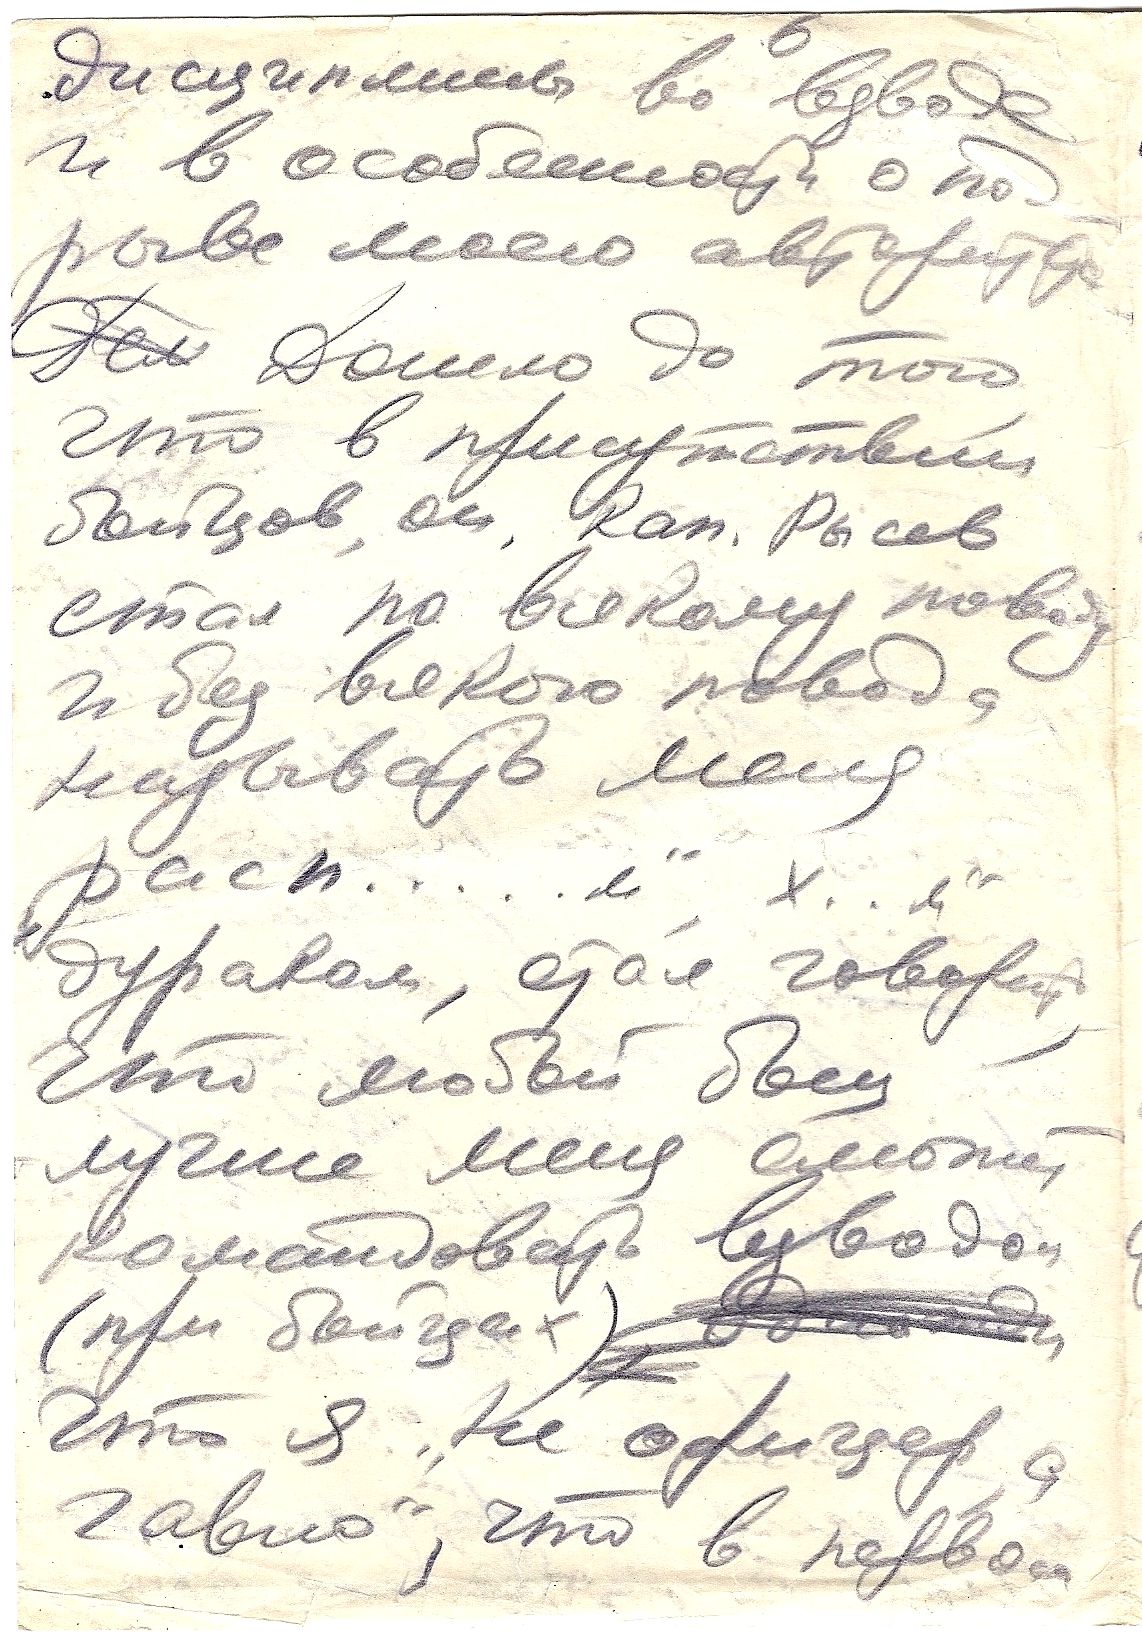 6
дисциплины во взводе
и в особенности о под
рыве моего авторитета
Дошло до того
что в присутствии
бойцов, он, кап. Рысев
стал по всякому поводу
и без всякого повода
называть меня
"расп.....м", х...м"
дураком, стал говорить,
что любой боец
лучше меня сможет
командовать взводом
(при бойцах)
что я "не офицер, а
гавно", что в первом